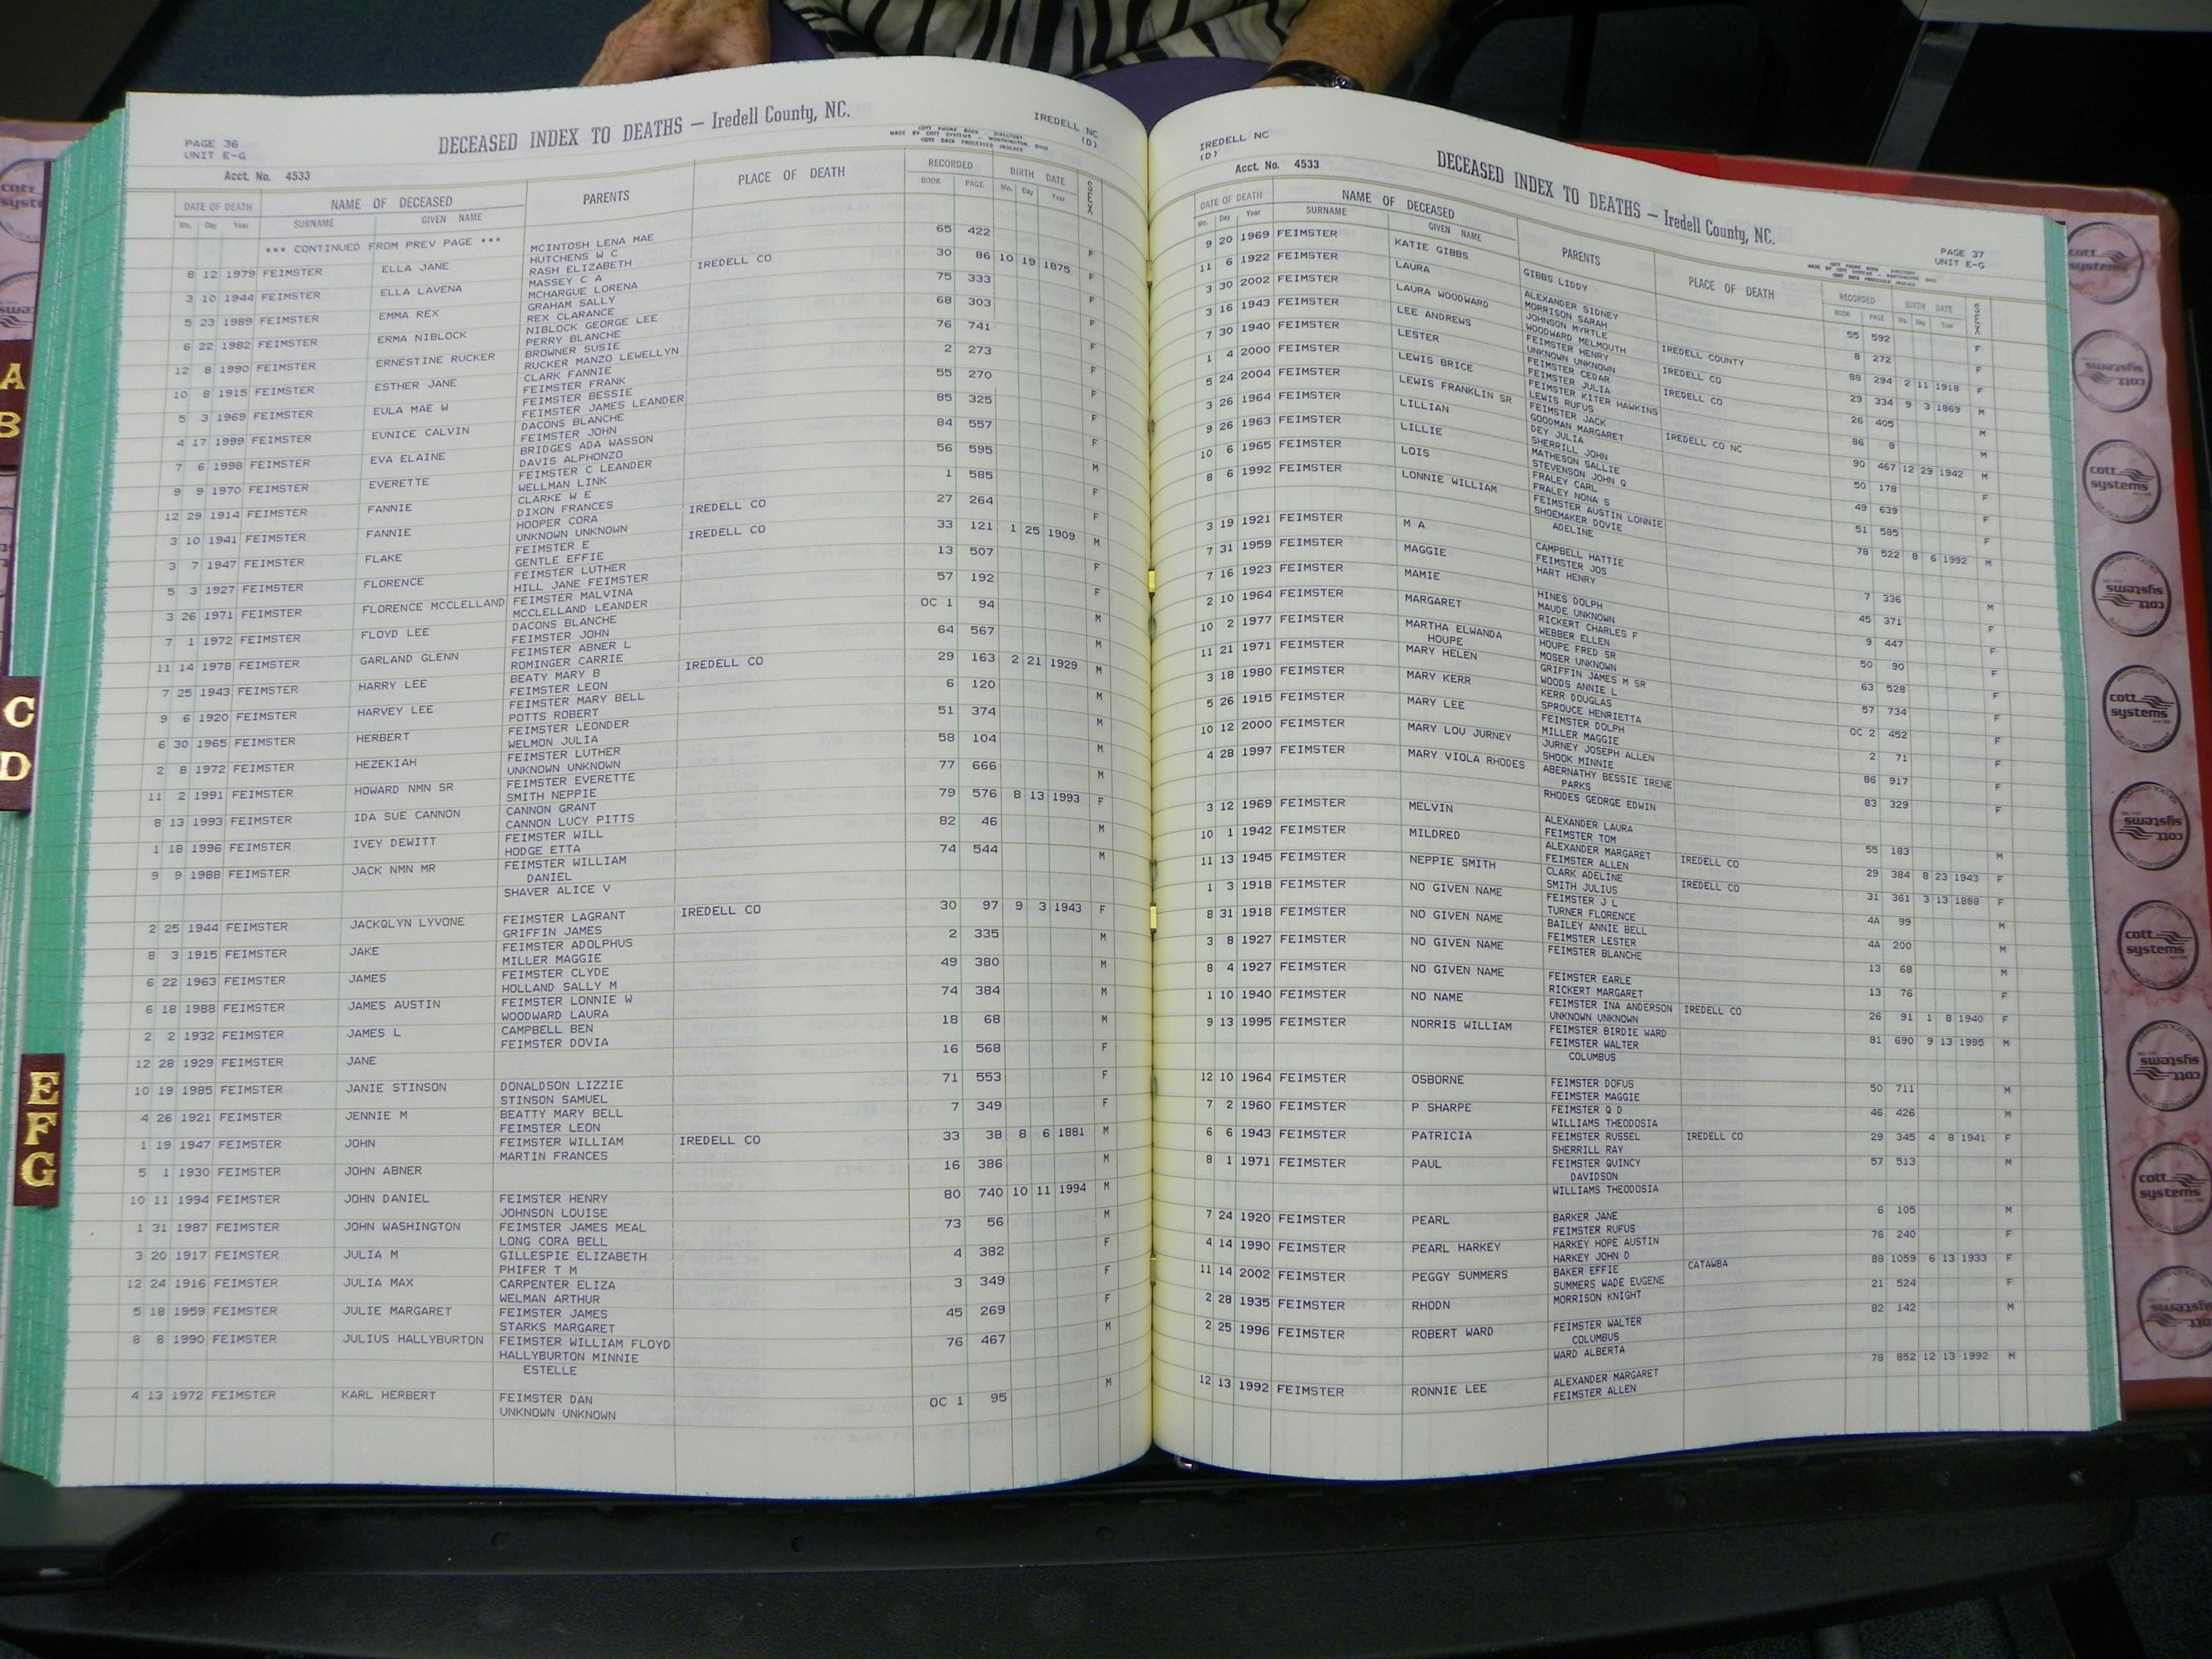 PAGE 36
UNIT E-G
Acct. No. 4533
DECEASED INDEX TO DEATHS — Iredell County, NC.
COTT PHONE BOOK - DIRECTORY
MADE BY COTT SYSTEMS - WORTHINGTON, OHIO
COTT DATA PROCESSED INDEXES
IREDELL NC
(D)
DATE OF DEATH NAME OF DECEASED PARENTS PLACE OF DEATH RECORDED BIRTH DATE SEX
Mo. Day Year SURNAME GIVEN NAME BOOK PAGE Mo. Day Year
*** CONTINUED FROM PREV PAGE *** MCINTOSH LENA MAE
8 12 1979 FEIMSTER ELLA JANE HUTCHENS W C 65 422 F
RASH ELIZABETH
3 10 1944 FEIMSTER ELLA LAVENA MASSEY C A IREDELL CO 30 86 10 19 1875 F
MCHARGUE LORENA
5 23 1989 FEIMSTER EMMA REX GRAHAM SALLY 75 333
REX CLARANCE
6 22 1982 FEIMSTER ERMA NIBLOCK NIBLOCK GEORGE LEE 68 303 F
PERRY BLANCHE
12 8 1990 FEIMSTER ERNESTINE RUCKER BROWNER SUSIE 76 741 F
RUCKER MANZO LEWELLYN
10 8 1915 FEIMSTER ESTHER JANE CLARK FANNIE 2 273 F
FEIMSTER FRANK
5 3 1969 FEIMSTER EULA MAE W FEIMSTER BESSIE 55 270 F
FEIMSTER JAMES LEANDER
4 17 1999 FEIMSTER EUNICE CALVIN DACONS BLANCHE 85 325 F
FEIMSTER JOHN
7 6 1998 FEIMSTER EVA ELAINE BRIDGES ADA WASSON 84 557 F
DAVIS ALPHONZO
9 9 1970 FEIMSTER EVERETTE FEIMSTER C LEANDER 56 595 M
WELLMAN LINK
12 29 1914 FEIMSTER FANNIE CLARKE W E 1 585 F
DIXON FRANCES
3 10 1941 FEIMSTER FANNIE HOOPER CORA IREDELL CO 27 264 F
UNKNOWN UNKNOWN
3 7 1947 FEIMSTER FLAKE FEIMSTER E IREDELL CO 33 121 1 25 1909 M
GENTLE EFFIE
5 3 1927 FEIMSTER FLORENCE FEIMSTER LUTHER 13 507 F
HILL JANE FEIMSTER
3 26 1971 FEIMSTER FLORENCE MCCLELLAND FEIMSTER MALVINA 57 192 F
MCCLELLAND LEANDER
7 1 1972 FEIMSTER FLOYD LEE DACONS BLANCHE OC 1 94 M
FEIMSTER JOHN
11 14 1978 FEIMSTER GARLAND GLENN FEIMSTER ABNER L 64 567 M
ROMINGER CARRIE
7 25 1943 FEIMSTER HARRY LEE BEATY MARY B IREDELL CO 29 163 2 21 1929 M
FEIMSTER LEON
9 6 1920 FEIMSTER HARVEY LEE FEIMSTER MARY BELL 6 120 M
POTTS ROBERT
6 30 1965 FEIMSTER HERBERT FEIMSTER LEONDER 51 374 M
WELMON JULIA
2 8 1972 FEIMSTER HEZEKIAH FEIMSTER LUTHER 58 104 M
UNKNOWN UNKNOWN
11 2 1991 FEIMSTER HOWARD NMN SR FEIMSTER EVERETTE 77 666 M
SMITH NEPPIE
8 13 1993 FEIMSTER IDA SUE CANNON CANNON GRANT 79 576 8 13 1993 F
CANNON LUCY PITTS
1 18 1996 FEIMSTER IVEY DEWITT FEIMSTER WILL 82 46 M
HODGE ETTA
9 9 1988 FEIMSTER JACK NMN MR FEIMSTER WILLIAM 74 544 M
DANIEL
SHAVER ALICE V
2 25 1944 FEIMSTER JACKQLYN LYVONE FEIMSTER LAGRANT IREDELL CO 30 97 9 3 1943 F
GRIFFIN JAMES
8 3 1915 FEIMSTER JAKE FEIMSTER ADOLPHUS 2 335 M
MILLER MAGGIE
6 22 1963 FEIMSTER JAMES FEIMSTER CLYDE 49 380 M
HOLLAND SALLY M
6 18 1988 FEIMSTER JAMES AUSTIN FEIMSTER LONNIE W 74 384 M
WOODWARD LAURA
2 2 1932 FEIMSTER JAMES L CAMPBELL BEN 18 68 M
FEIMSTER DOVIA
12 28 1929 FEIMSTER JANE 16 568 F
10 19 1985 FEIMSTER JANIE STINSON DONALDSON LIZZIE 71 553 F
STINSON SAMUEL
4 26 1921 FEIMSTER JENNIE M BEATTY MARY BELL 7 349 F
FEIMSTER LEON
1 19 1947 FEIMSTER JOHN FEIMSTER WILLIAM IREDELL CO 33 38 8 6 1881 M
MARTIN FRANCES
5 1 1930 FEIMSTER JOHN ABNER 16 386 M
10 11 1994 FEIMSTER JOHN DANIEL FEIMSTER HENRY 80 740 10 11 1994 M
JOHNSON LOUISE
1 31 1987 FEIMSTER JOHN WASHINGTON FEIMSTER JAMES MEAL 73 56 M
LONG CORA BELL
3 20 1917 FEIMSTER JULIA M GILLESPIE ELIZABETH 4 382 F
PHIFER T M
12 24 1916 FEIMSTER JULIA MAX CARPENTER ELIZA 3 349 F
WELMAN ARTHUR
5 18 1959 FEIMSTER JULIE MARGARET FEIMSTER JAMES 45 269 F
STARKS MARGARET
8 8 1990 FEIMSTER JULIUS HALLYBURTON FEIMSTER WILLIAM FLOYD 76 467 M
HALLYBURTON MINNIE
ESTELLE
4 13 1972 FEIMSTER KARL HERBERT FEIMSTER DAN OC 1 95 M
UNKNOWN UNKNOWN
IREDELL NC
(D)
Acct. No. 4533
DECEASED INDEX TO DEATHS — Iredell County, NC.
PAGE 37
UNIT E-G
COTT PHONE BOOK - DIRECTORY
MADE BY COTT SYSTEMS - WORTHINGTON, OHIO
COTT DATA PROCESSED INDEXES
DATE OF DEATH NAME OF DECEASED PARENTS PLACE OF DEATH RECORDED BIRTH DATE SEX
Mo. Day Year SURNAME GIVEN NAME BOOK PAGE Mo. Day Year
9 20 1969 FEIMSTER KATIE GIBBS GIBBS LIDDY 55 592 F
11 6 1922 FEIMSTER LAURA ALEXANDER SIDNEY IREDELL COUNTY 8 272 F
MORRISON SARAH
3 30 2002 FEIMSTER LAURA WOODWARD JOHNSON MYRTLE IREDELL CO 88 294 2 11 1918 F
WOODWARD MELMOUTH
3 16 1943 FEIMSTER LEE ANDREWS FEIMSTER HENRY IREDELL CO 29 334 9 3 1869 M
UNKNOWN UNKNOWN
7 30 1940 FEIMSTER LESTER FEIMSTER CEDAR 26 405 M
FEIMSTER JULIA
1 4 2000 FEIMSTER LEWIS BRICE FEIMSTER KITER HAWKINS IREDELL CO NC 86 8 M
LEWIS RUFUS
5 24 2004 FEIMSTER LEWIS FRANKLIN SR FEIMSTER JACK 90 467 12 29 1942 M
GOODMAN MARGARET
3 26 1964 FEIMSTER LILLIAN DEY JULIA 50 178 F
SHERRILL JOHN
9 26 1963 FEIMSTER LILLIE MATHESON SALLIE 49 639 F
STEVENSON JOHN Q
10 6 1965 FEIMSTER LOIS FRALEY CARL 51 585 F
FRALEY NONA S
8 6 1992 FEIMSTER LONNIE WILLIAM FEIMSTER AUSTIN LONNIE 78 522 8 6 1992 M
SHOEMAKER DOVIE
ADELINE
3 19 1921 FEIMSTER M A CAMPBELL HATTIE 7 336 M
FEIMSTER JOS
7 31 1959 FEIMSTER MAGGIE HART HENRY 45 371 F
7 16 1923 FEIMSTER MAMIE HINES DOLPH 9 447 F
MAUDE UNKNOWN
2 10 1964 FEIMSTER MARGARET RICKERT CHARLES F 50 90 F
WEBBER ELLEN
10 2 1977 FEIMSTER MARTHA ELWANDA HOUPE FRED SR 63 528 F
HOUPE MOSER UNKNOWN
11 21 1971 FEIMSTER MARY HELEN GRIFFIN JAMES M SR 57 734 F
WOODS ANNIE L
3 18 1980 FEIMSTER MARY KERR KERR DOUGLAS OC 2 452 F
SPROUCE HENRIETTA
5 26 1915 FEIMSTER MARY LEE FEIMSTER DOLPH 2 71 F
MILLER MAGGIE
10 12 2000 FEIMSTER MARY LOU JURNEY JURNEY JOSEPH ALLEN 86 917 F
SHOOK MINNIE
4 28 1997 FEIMSTER MARY VIOLA RHODES ABERNATHY BESSIE IRENE 83 329 F
PARKS
RHODES GEORGE EDWIN
3 12 1969 FEIMSTER MELVIN ALEXANDER LAURA 55 183 M
FEIMSTER TOM
10 1 1942 FEIMSTER MILDRED ALEXANDER MARGARET IREDELL CO 29 384 8 23 1943 F
FEIMSTER ALLEN
11 13 1945 FEIMSTER NEPPIE SMITH CLARK ADELINE IREDELL CO 31 361 3 13 1888 F
SMITH JULIUS
1 3 1918 FEIMSTER NO GIVEN NAME FEIMSTER J L 4A 99 M
TURNER FLORENCE
8 31 1918 FEIMSTER NO GIVEN NAME BAILEY ANNIE BELL 4A 200 M
FEIMSTER LESTER
3 8 1927 FEIMSTER NO GIVEN NAME FEIMSTER BLANCHE 13 68 M
8 4 1927 FEIMSTER NO GIVEN NAME FEIMSTER EARLE 13 76 F
RICKERT MARGARET
1 10 1940 FEIMSTER NO NAME FEIMSTER INA ANDERSON IREDELL CO 26 91 1 8 1940 F
UNKNOWN UNKNOWN
9 13 1995 FEIMSTER NORRIS WILLIAM FEIMSTER BIRDIE WARD 81 690 9 13 1995 M
FEIMSTER WALTER
COLUMBUS
12 10 1964 FEIMSTER OSBORNE FEIMSTER DOFUS 50 711 M
FEIMSTER MAGGIE
7 2 1960 FEIMSTER P SHARPE FEIMSTER Q D 46 426 M
WILLIAMS THEODOSIA
6 6 1943 FEIMSTER PATRICIA FEIMSTER RUSSEL IREDELL CO 29 345 4 8 1941 F
SHERRILL RAY
8 1 1971 FEIMSTER PAUL FEIMSTER QUINCY 57 513 M
DAVIDSON
WILLIAMS THEODOSIA
7 24 1920 FEIMSTER PEARL BARKER JANE 6 105 M
FEIMSTER RUFUS
4 14 1990 FEIMSTER PEARL HARKEY HARKEY HOPE AUSTIN 76 240 F
HARKEY JOHN D
11 14 2002 FEIMSTER PEGGY SUMMERS BAKER EFFIE CATAWBA 88 1059 6 13 1933 F
SUMMERS WADE EUGENE
2 28 1935 FEIMSTER RHODN MORRISON KNIGHT 21 524 F
2 25 1996 FEIMSTER ROBERT WARD FEIMSTER WALTER 82 142 M
COLUMBUS
WARD ALBERTA
12 13 1992 FEIMSTER RONNIE LEE ALEXANDER MARGARET 78 852 12 13 1992 M
FEIMSTER ALLEN
A
B
C
D
E
F
G
cott systems
cott systems
cott systems
cott systems
cott systems